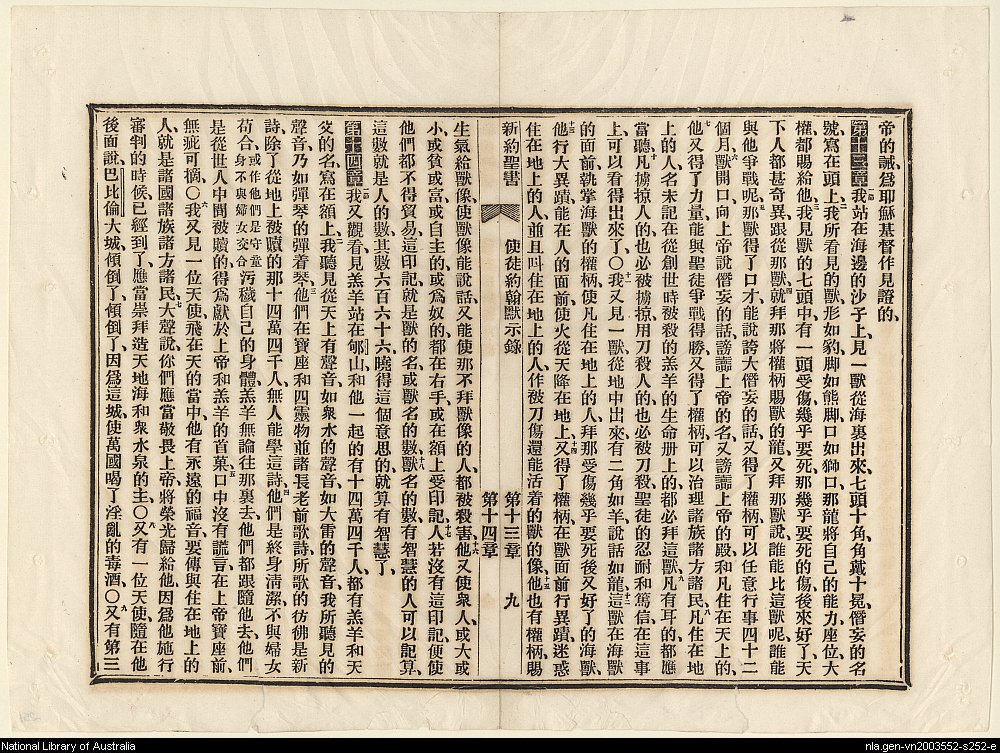 帝的誡、爲耶穌基督作見證的、
第十三章一節我站在海邊的沙子上、見一獸從海裏出來、七頭十角、角戴十冕、僭妄的名
號寫在頭上、二我所看見的獸、形如豹、脚如熊脚、口如獅口、那龍將自己的能力座位大
權、都賜給他、三我見獸的七頭中、有一頭受傷幾乎要死、那幾乎要死的傷、後來好了、天
下人都甚奇異、跟從那獸、四就拜那將權柄賜獸的龍、又拜那獸、說誰能比這獸呢、誰能
與他爭戰呢、五那獸得了口才、能說誇大僭妄的話、又得了權柄、可以任意行事四十二
個月、六獸開口向上帝說僭妄的話、謗讟上帝的名、又謗讟上帝的殿、和凡住在天上的、
七他又得了力量、能與聖徒爭戰得勝、又得了權柄、可以治理諸族諸方諸民、八凡住在地
上的人、名未記在從創世時被殺的羔羊的生命册上的、都必拜這獸、九凡有耳的、都應
當聽、十凡擄掠人的、也必被擄掠、用刀殺人的、也必被刀殺、聖徒的忍耐和篤信、在這事
上、可以看得出來了、〇十一我又見一獸、從地中出來、有二角如羊、說話如龍、十二這獸在海獸
的面前、執掌海獸的權柄、使凡住在地上的人、拜那受傷幾乎要死後又好了的海獸、
十三他行大異蹟、能在人的面前、使火從天降在地上、十四又得了權柄、在獸面前行異蹟、迷惑
住在地上的人、並且叫住在地上的人、作被刀傷還能活着的獸的像、十五他也有權柄賜
新約聖書 使徒約翰默示錄 第十三章 九
第十四章
生氣給獸像、使獸像能說話、又能使那不拜獸像的人、都被殺害、十六他又使衆人、或大或
小、或貧或富、或自主的、或爲奴的、都在右手或在額上受印記、十七人若沒有這印記、便使
他們都不得貿易、這印記就是獸的名、或獸名的數、十八獸名的數、有智慧的人可以記算、
這數就是人的數、其數六百六十六、曉得這個意思的、就算有智慧了、
第十四章一節我又觀看、見羔羊站在郇山、和他一起的有十四萬四千人、都有羔羊和天
父的名寫在額上、二我聽見從天上有聲音、如衆水的聲音、如大雷的聲音、我所聽見的
聲音、乃如彈琴的彈着琴、三他們在寶座和四靈物並諸長老前歌詩、所歌的彷彿是新
詩、除了從地上被贖的那十四萬四千人、無人能學這詩、四他們是終身清潔、不與婦女
苟合、或作他們是守童身不與婦女交合污穢自己的身體、羔羊無論往那裏去、他們都跟隨他去、他們
是從世人中間被贖的、得爲獻於上帝和羔羊的首菓、五口中沒有謊言、在上帝寶座前、
無疵可摘、〇六我又見一位天使、飛在天的當中、他有永遠的福音、要傳與住在地上的
人、就是諸國諸族諸方諸民、七大聲說、你們應當敬畏上帝、將榮光歸給他、因爲他施行
審判的時候、已經到了、應當崇拜造天地海和衆水泉的主、〇八又有一位天使、隨在他
後面說、巴比倫大城傾倒了、傾倒了、因爲這城使萬國喝了淫亂的毒酒、〇九又有第三
National Library of Australia
nla.gen-vn2003552-s252-e